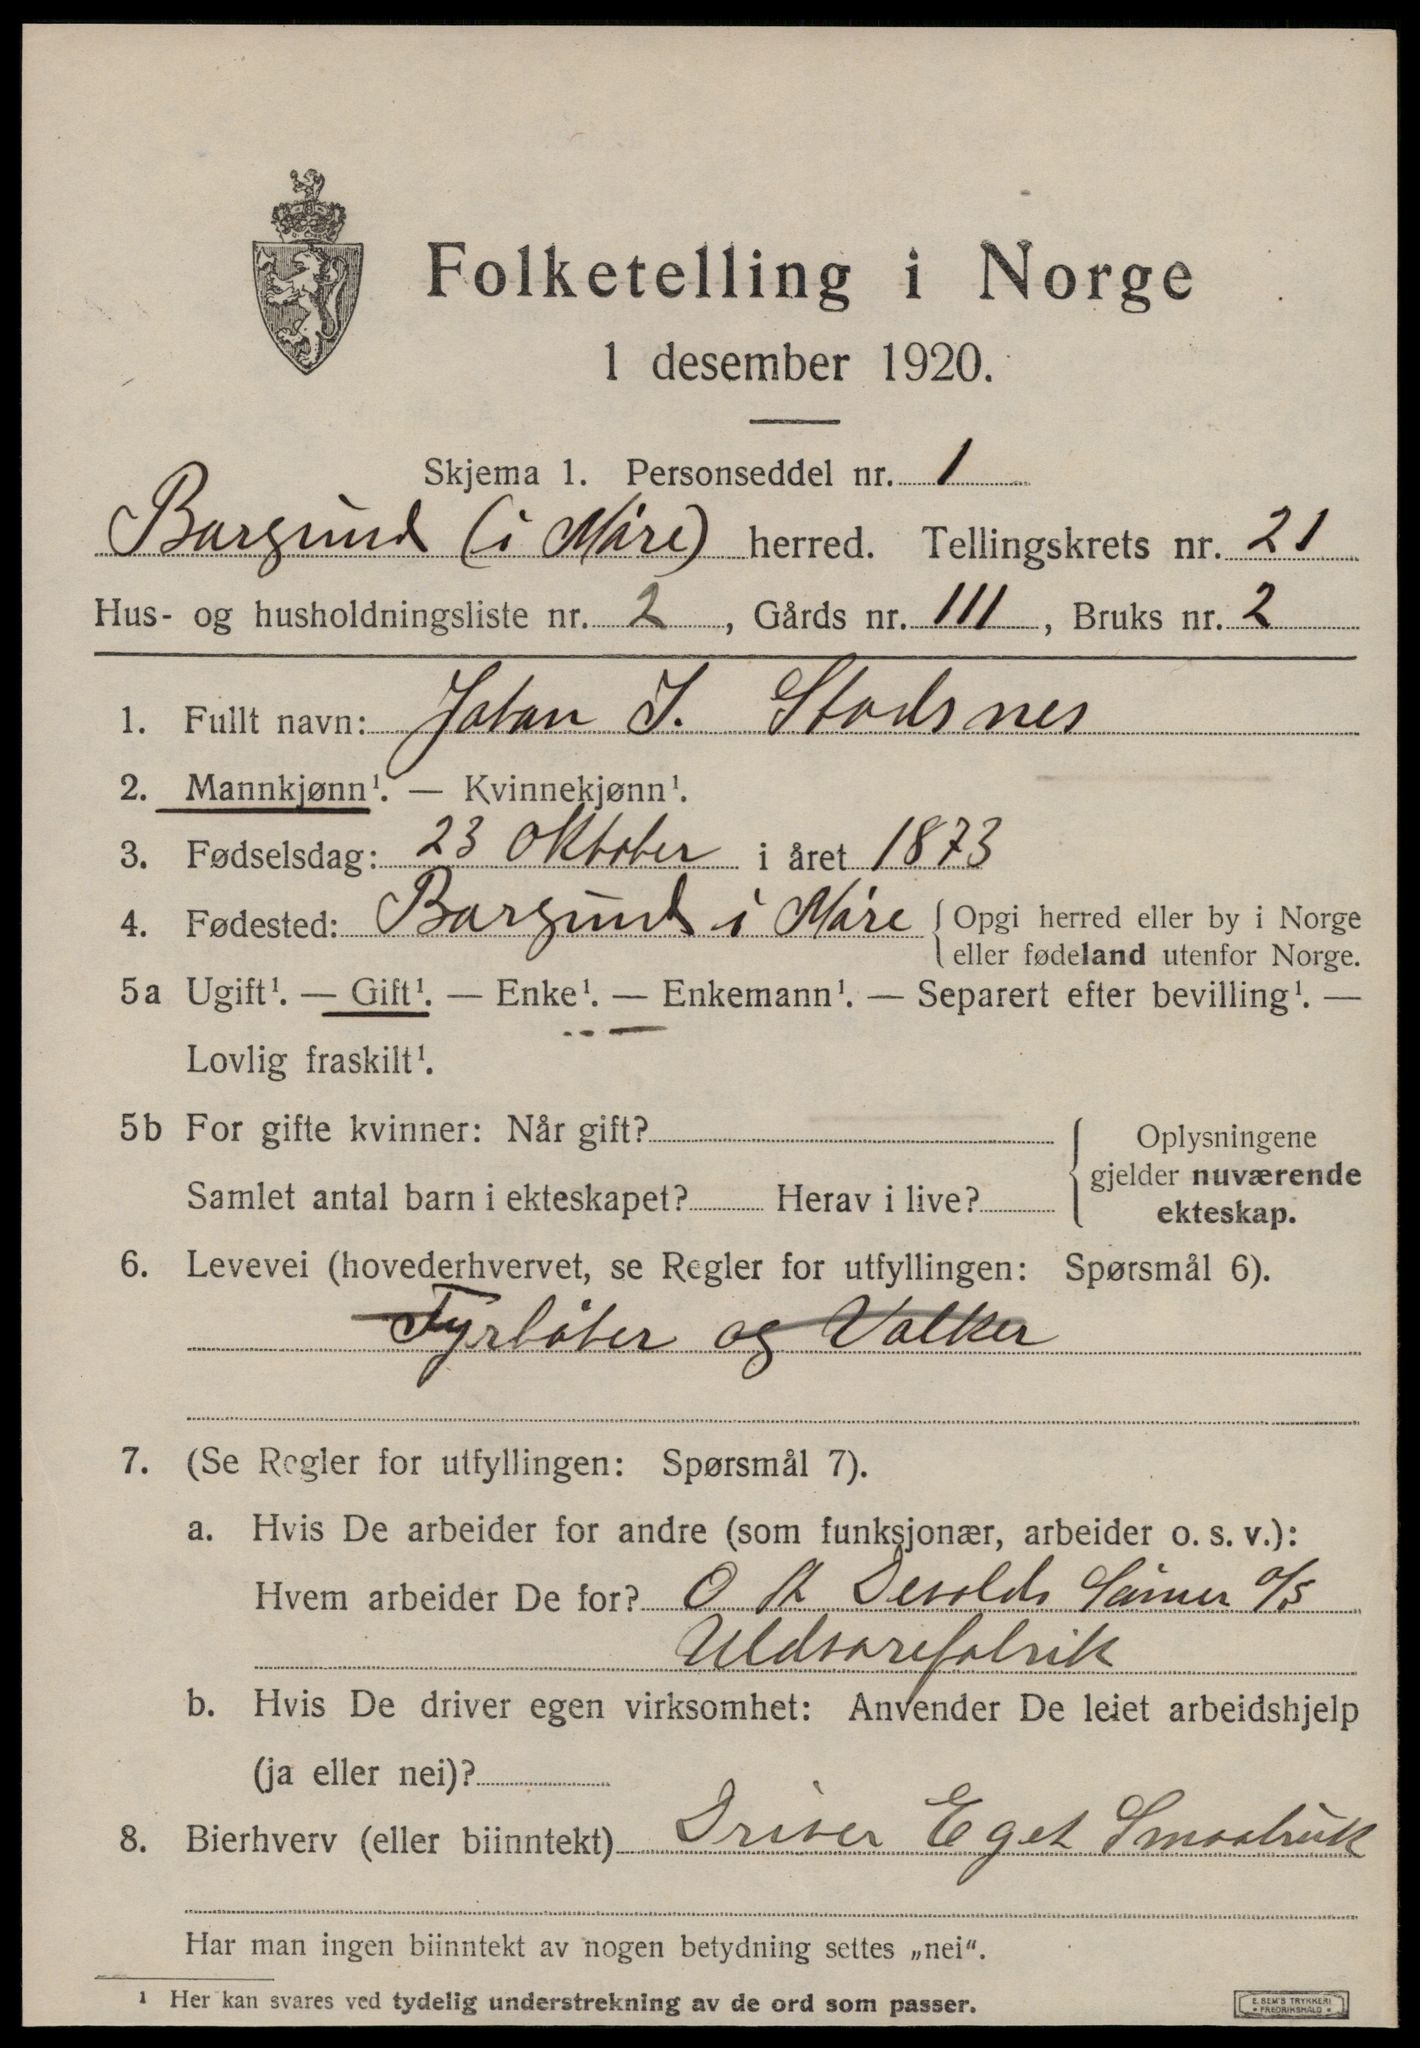 Folketelling i Norge
1 desember 1920.
Skjema 1. Personseddel nr. 1
Borgund (i Møre) herred. Tellingskrets nr. 21
Hus- og husholdningsliste nr. 2, Gårds nr. 111, Bruks nr. 2
1. Fullt navn: Johan J. Stadsnes
2. Mannkjønn¹. — Kvinnekjønn¹.
3. Fødselsdag: 23 Oktober i året 1873
4. Fødested: Borgund i Møre { Opgi herred eller by i Norge
eller fødeland utenfor Norge.
5a Ugift¹. — Gift¹. — Enke¹. — Enkemann¹. — Separert efter bevilling¹. —
Lovlig fraskilt¹.
5b For gifte kvinner: Når gift?
Samlet antal barn i ekteskapet? Herav i live?
Oplysningene
gjelder nuværende
ekteskap.
6. Levevei (hovederhvervet, se Regler for utfyllingen: Spørsmål 6).
Fyrbøter og Valker
7. (Se Regler for utfyllingen: Spørsmål 7).
a. Hvis De arbeider for andre (som funksjonær, arbeider o. s. v.):
Hvem arbeider De for? O A Devolds Sønner a/s
Uldvarefabrik
b. Hvis De driver egen virksomhet: Anvender De leiet arbeidshjelp
(ja eller nei)?
8. Bierhverv (eller biinntekt) Driver Eget Smaabruk
Har man ingen biinntekt av nogen betydning settes „nei“.
¹ Her kan svares ved tydelig understrekning av de ord som passer.
E. SEM'S TRYKKERI
FREDRIKSHALD